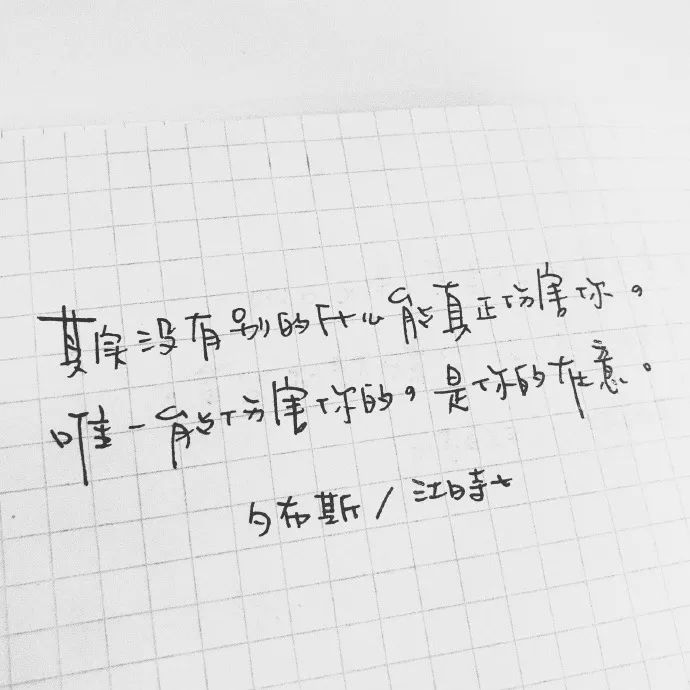 其实没有别的什么能真正伤害你。
唯一能伤害你的。是你的在意。
勺布斯/江時七